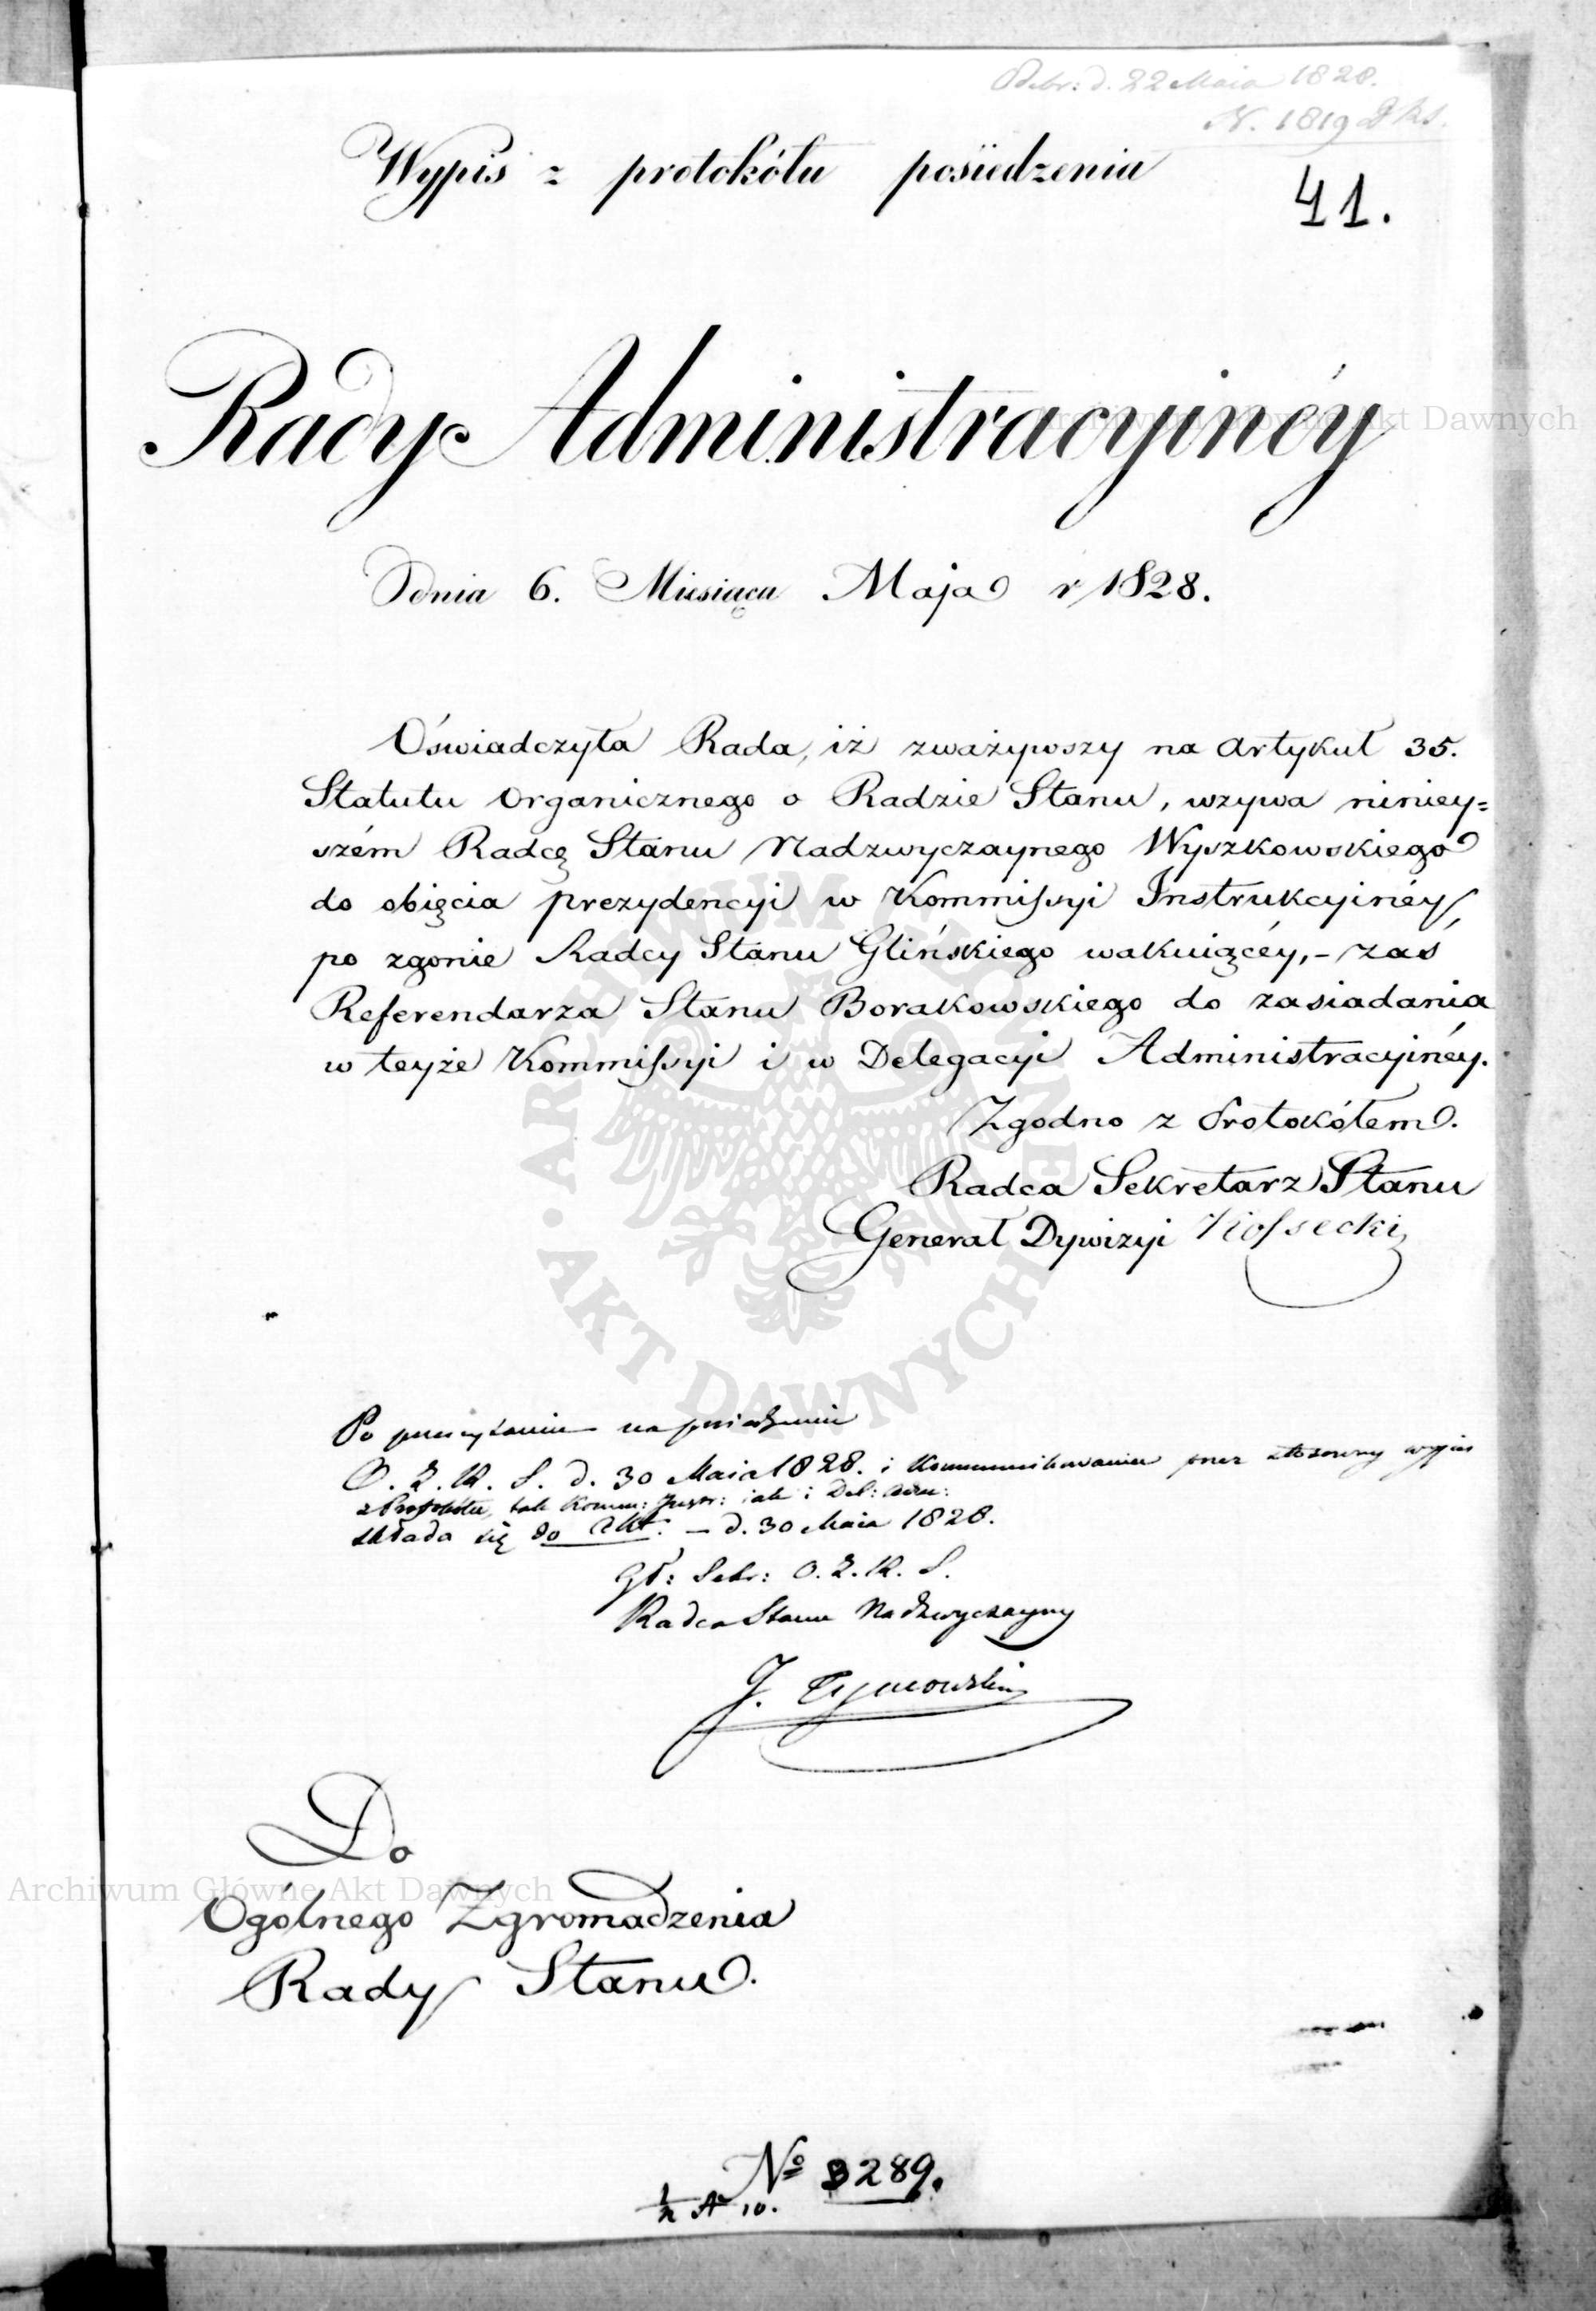 Odebr: d. 22 Maia 1828.
N. 1819 D RS.
Wypis z protokółu posiedzenia
41.
Rady Administracyinéy
Archiwum Główne Akt Dawnych
Dnia 6. Miesiąca Maja r 1828.
Oświadczyła Rada, iż zważywszy na artykuł 35.
Statutu Organicznego o Radzie Stanu, wzywa niniey=
szém Radcę Stanu Nadzwyczaynego Wyszkowskiego
do obięcia prezydencyi w Kommissyi Instrukcyinéy,
po zgonie Radcy Stanu Glińskiego wakuiącéy,- zaś
Referendarza Stanu Borakowskiego do zasiadania
w teyże Kommissyi i w Delegacyi Administracyinéy.
Zgodno z Protokółem.
Radca Sekretarz Stanu
Generał Dywizyi Kossecki
ARCHIWUM GŁÓWNE • AKT DAWNYCH
Po przeczytaniu na posiedzeniu
O. Z. R. S. d. 30 Maia 1828. i kommunikowaniu przez stosowny wypis
z Protokółu, tak Komm: Instr: iak i Del: Adm:
składa się do Akt. — d. 30 Maia 1828.
Gł: Sekr: O. Z. R. S.
Radca Stanu Nadzwyczayny
J. Tymowski
Do
Archiwum Główne Akt Dawnych
Ogólnego Zgromadzenia
Rady Stanu.
Nº 3289.